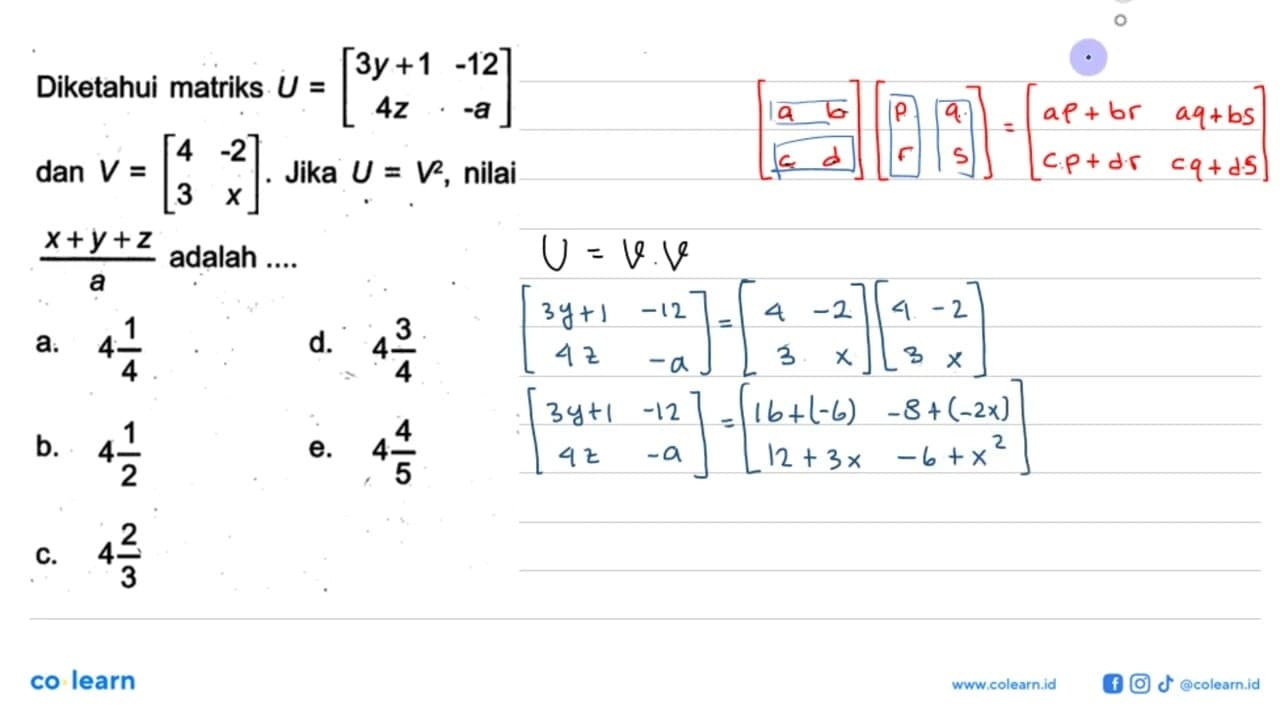 Diketahui matriks U = [3y+1 -12]
[4z -a]
dan V = [4 -2]
[3 x]. Jika U = V², nilai
x+y+z
a
adalah ....
a. 4 1/4
b. 4 1/2
c. 4 2/3
d. 4 3/4
e. 4 4/5
[a b] [p q] = [ap+br aq+bs]
[c d] [r s] [c.p+d.r cq+d.s]
U = V.V
[3y+1 -12] = [4 -2] [4 -2]
[4z -a] [3 x] [3 x]
[3y+1 -12] = [16+(-6) -8+(-2x)]
[4z -a] [12+3x -6+x²]
co learn
www.colearn.id
@colearn.id